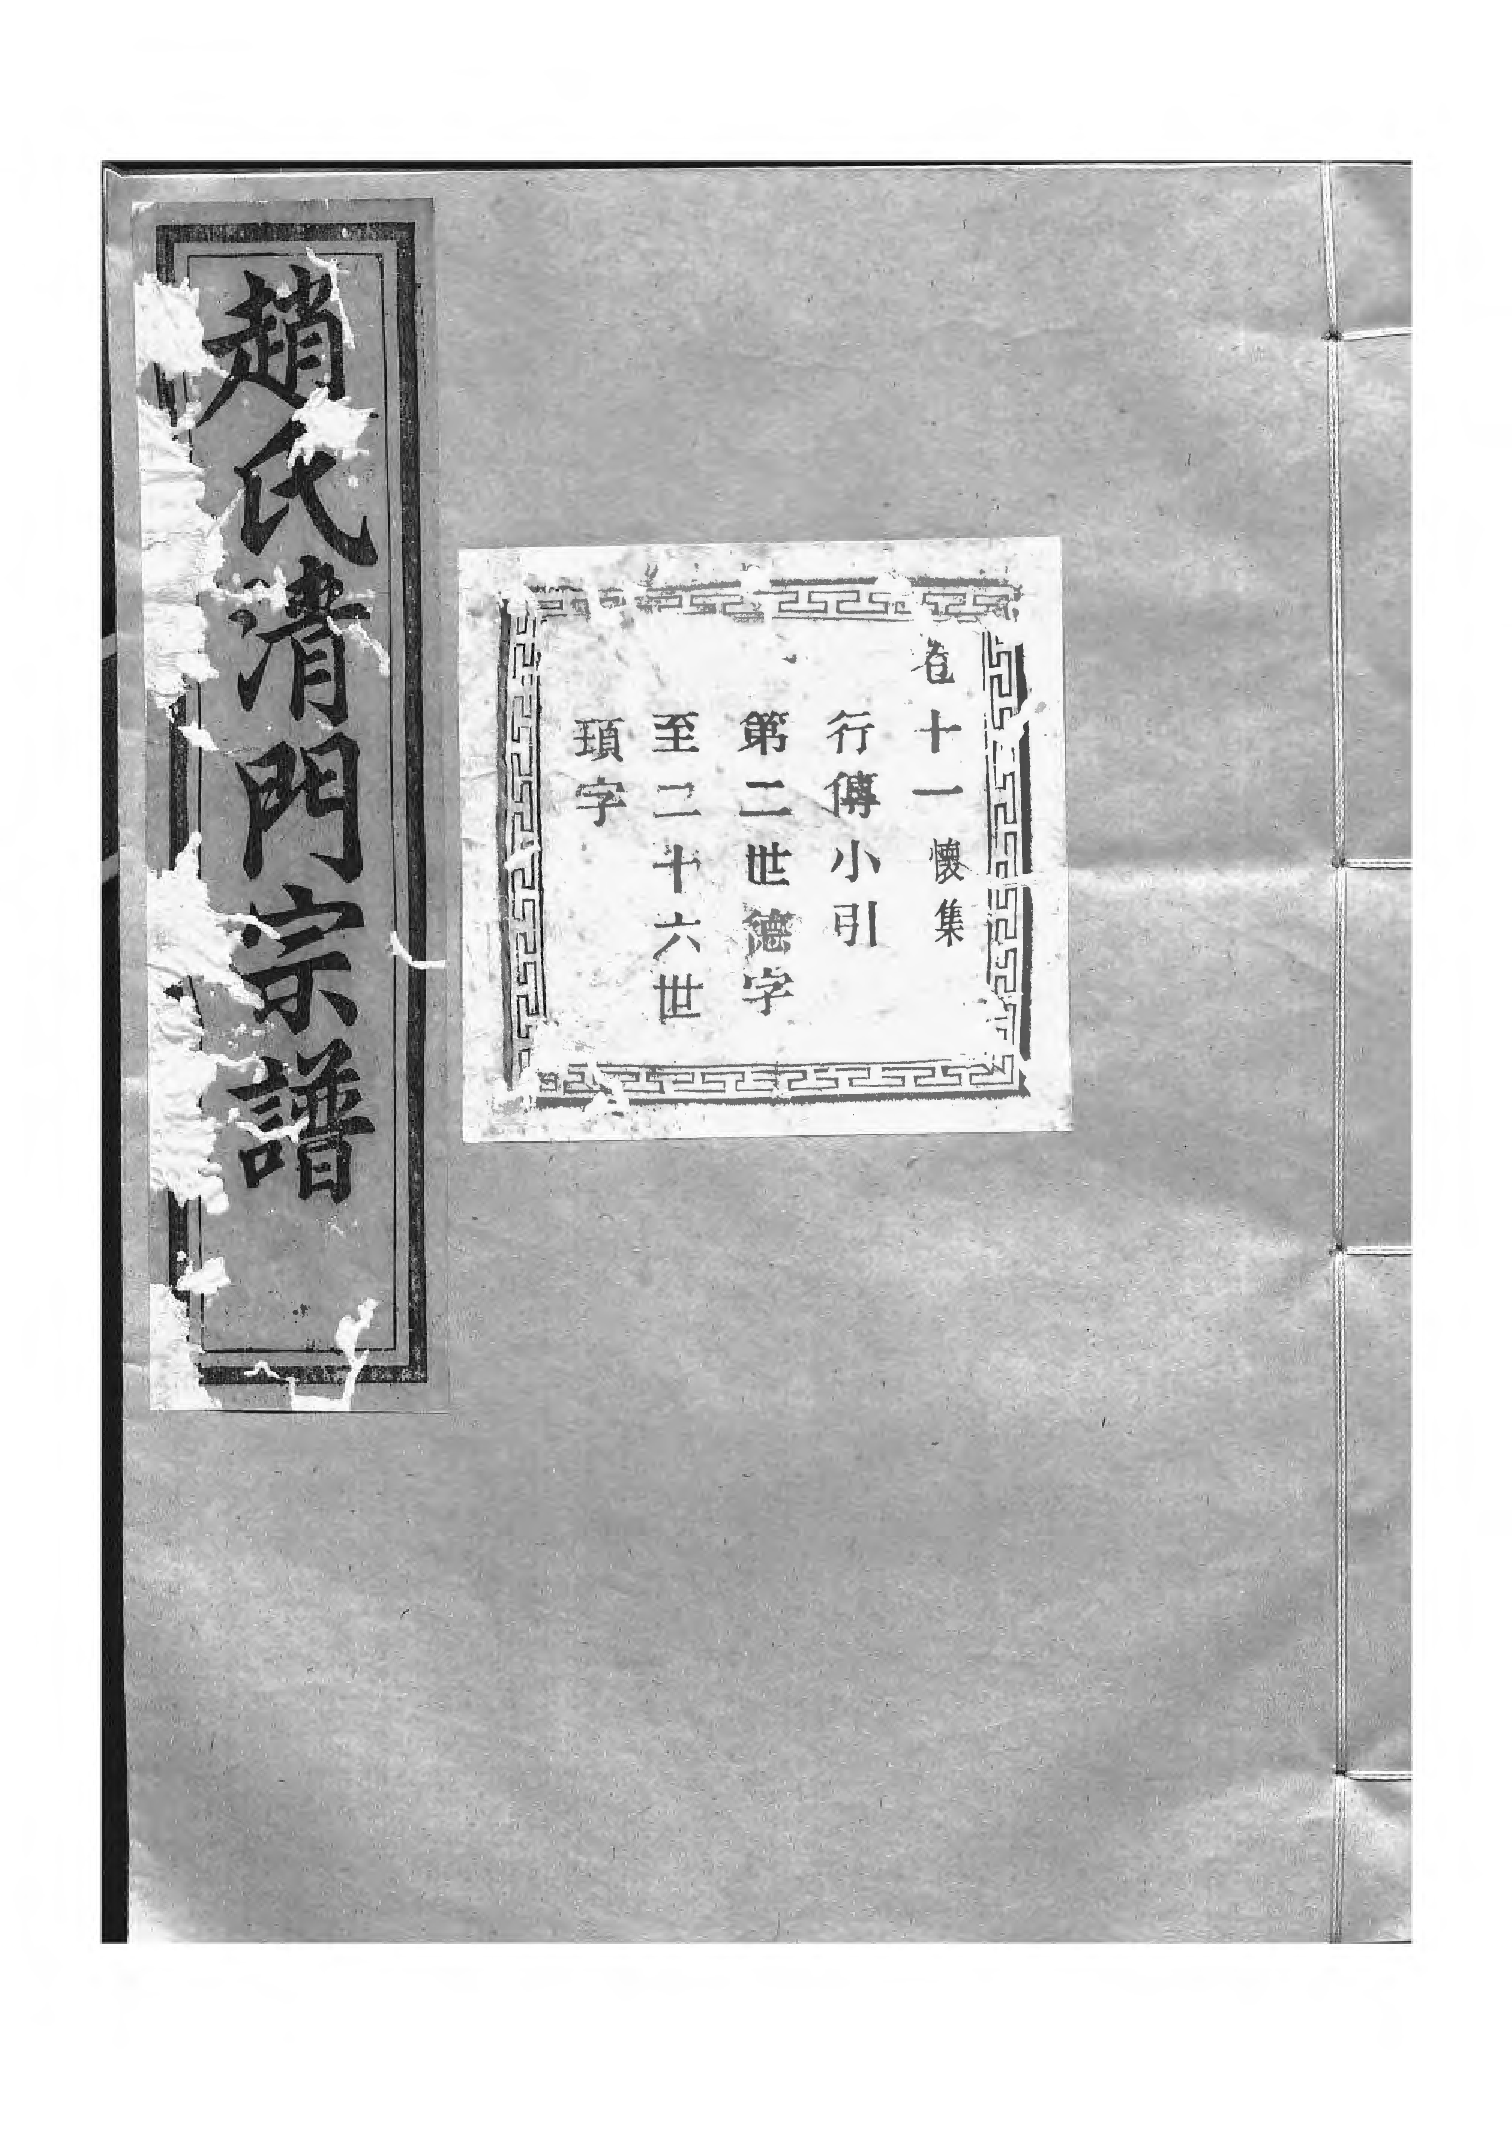 趙氏清門宗譜
卷十一 懷集
行傳小引
第二世德字
至二十六世
頊字